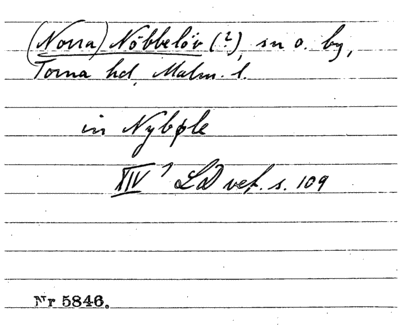 (Norra) Nöbbelöv (?), sn o. by,
Torna hd, Malm. l.
in Nybøle
XIV 1 LD vet. s. 109
Nr 5846.